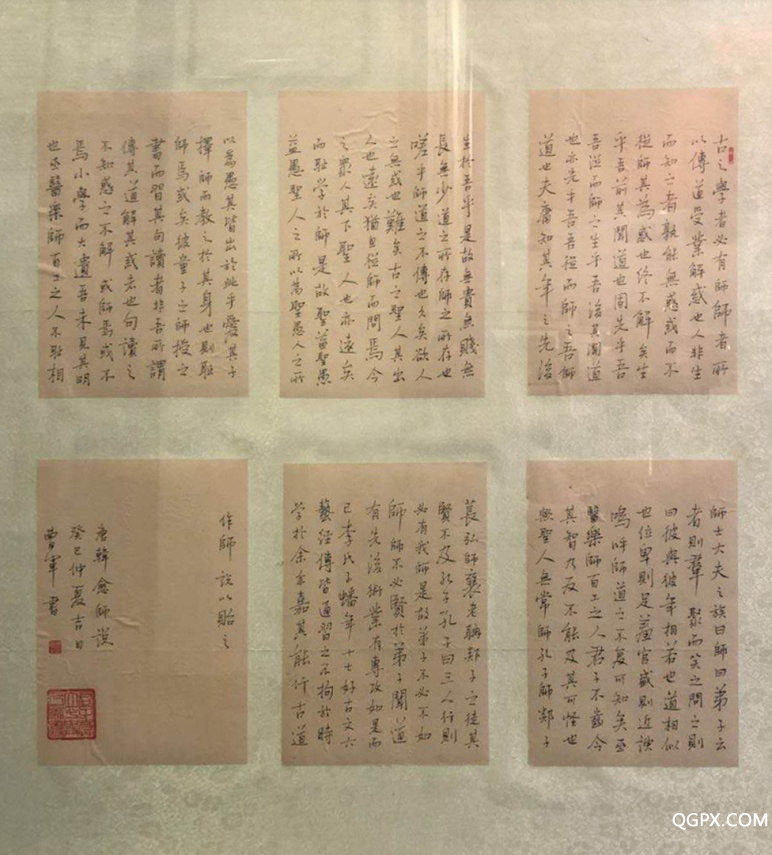 古之學者必有師師者所
以傳道受業解惑也人非生
而知之者孰能無惑或而不
從師其為惑也終不解矣生
乎吾前其聞道也固先乎吾
吾從而師之生乎吾後其聞道
也亦先乎吾吾從而師之吾師
道也夫庸知其年之先後
生於吾乎是故無貴無賤無
長無少道之所存師之所存也
嗟乎師道之不傳也久矣欲人
之無或也難矣古之聖人其出
人也遠矣猶且從師而問焉今
之衆人其下聖人也亦遠矣
而耻学於師是故聖益聖愚
益愚聖人之所以為聖愚人之所
以為愚其皆出於此乎愛其子
擇師而教之於其身也則耻
師焉或矣彼童子之師授之
書而習其句讀者非吾所謂
傳其道解其或者也句讀之
不知惑之不解或師焉或不
焉小學而大遺吾未見其明
也巫醫樂師百工之人不耻相
師士大夫之族曰師曰弟子云
者則羣聚而笑之問之則
曰彼與彼年相若也道相似
也位卑則足羞官盛則近諛
嗚呼師道之不复可知矣巫
醫樂師百工之人君子不齒今
其智乃反不能及其可怪也
無聖人無常師孔子師郯子
萇弘師襄老聃郯子之徒其
賢不及孔子孔子曰三人行則
必有我師是故弟子不必不如
師師不必賢於弟子聞道
有先後術業有專攻如是而
已李氏子蟠年十七好古文六
藝經傳皆通習之不拘於時
学於余余嘉其能行古道
作師說以貽之
唐韓愈師說
癸巳仲夏吉日
曹軍書
QGPX.COM